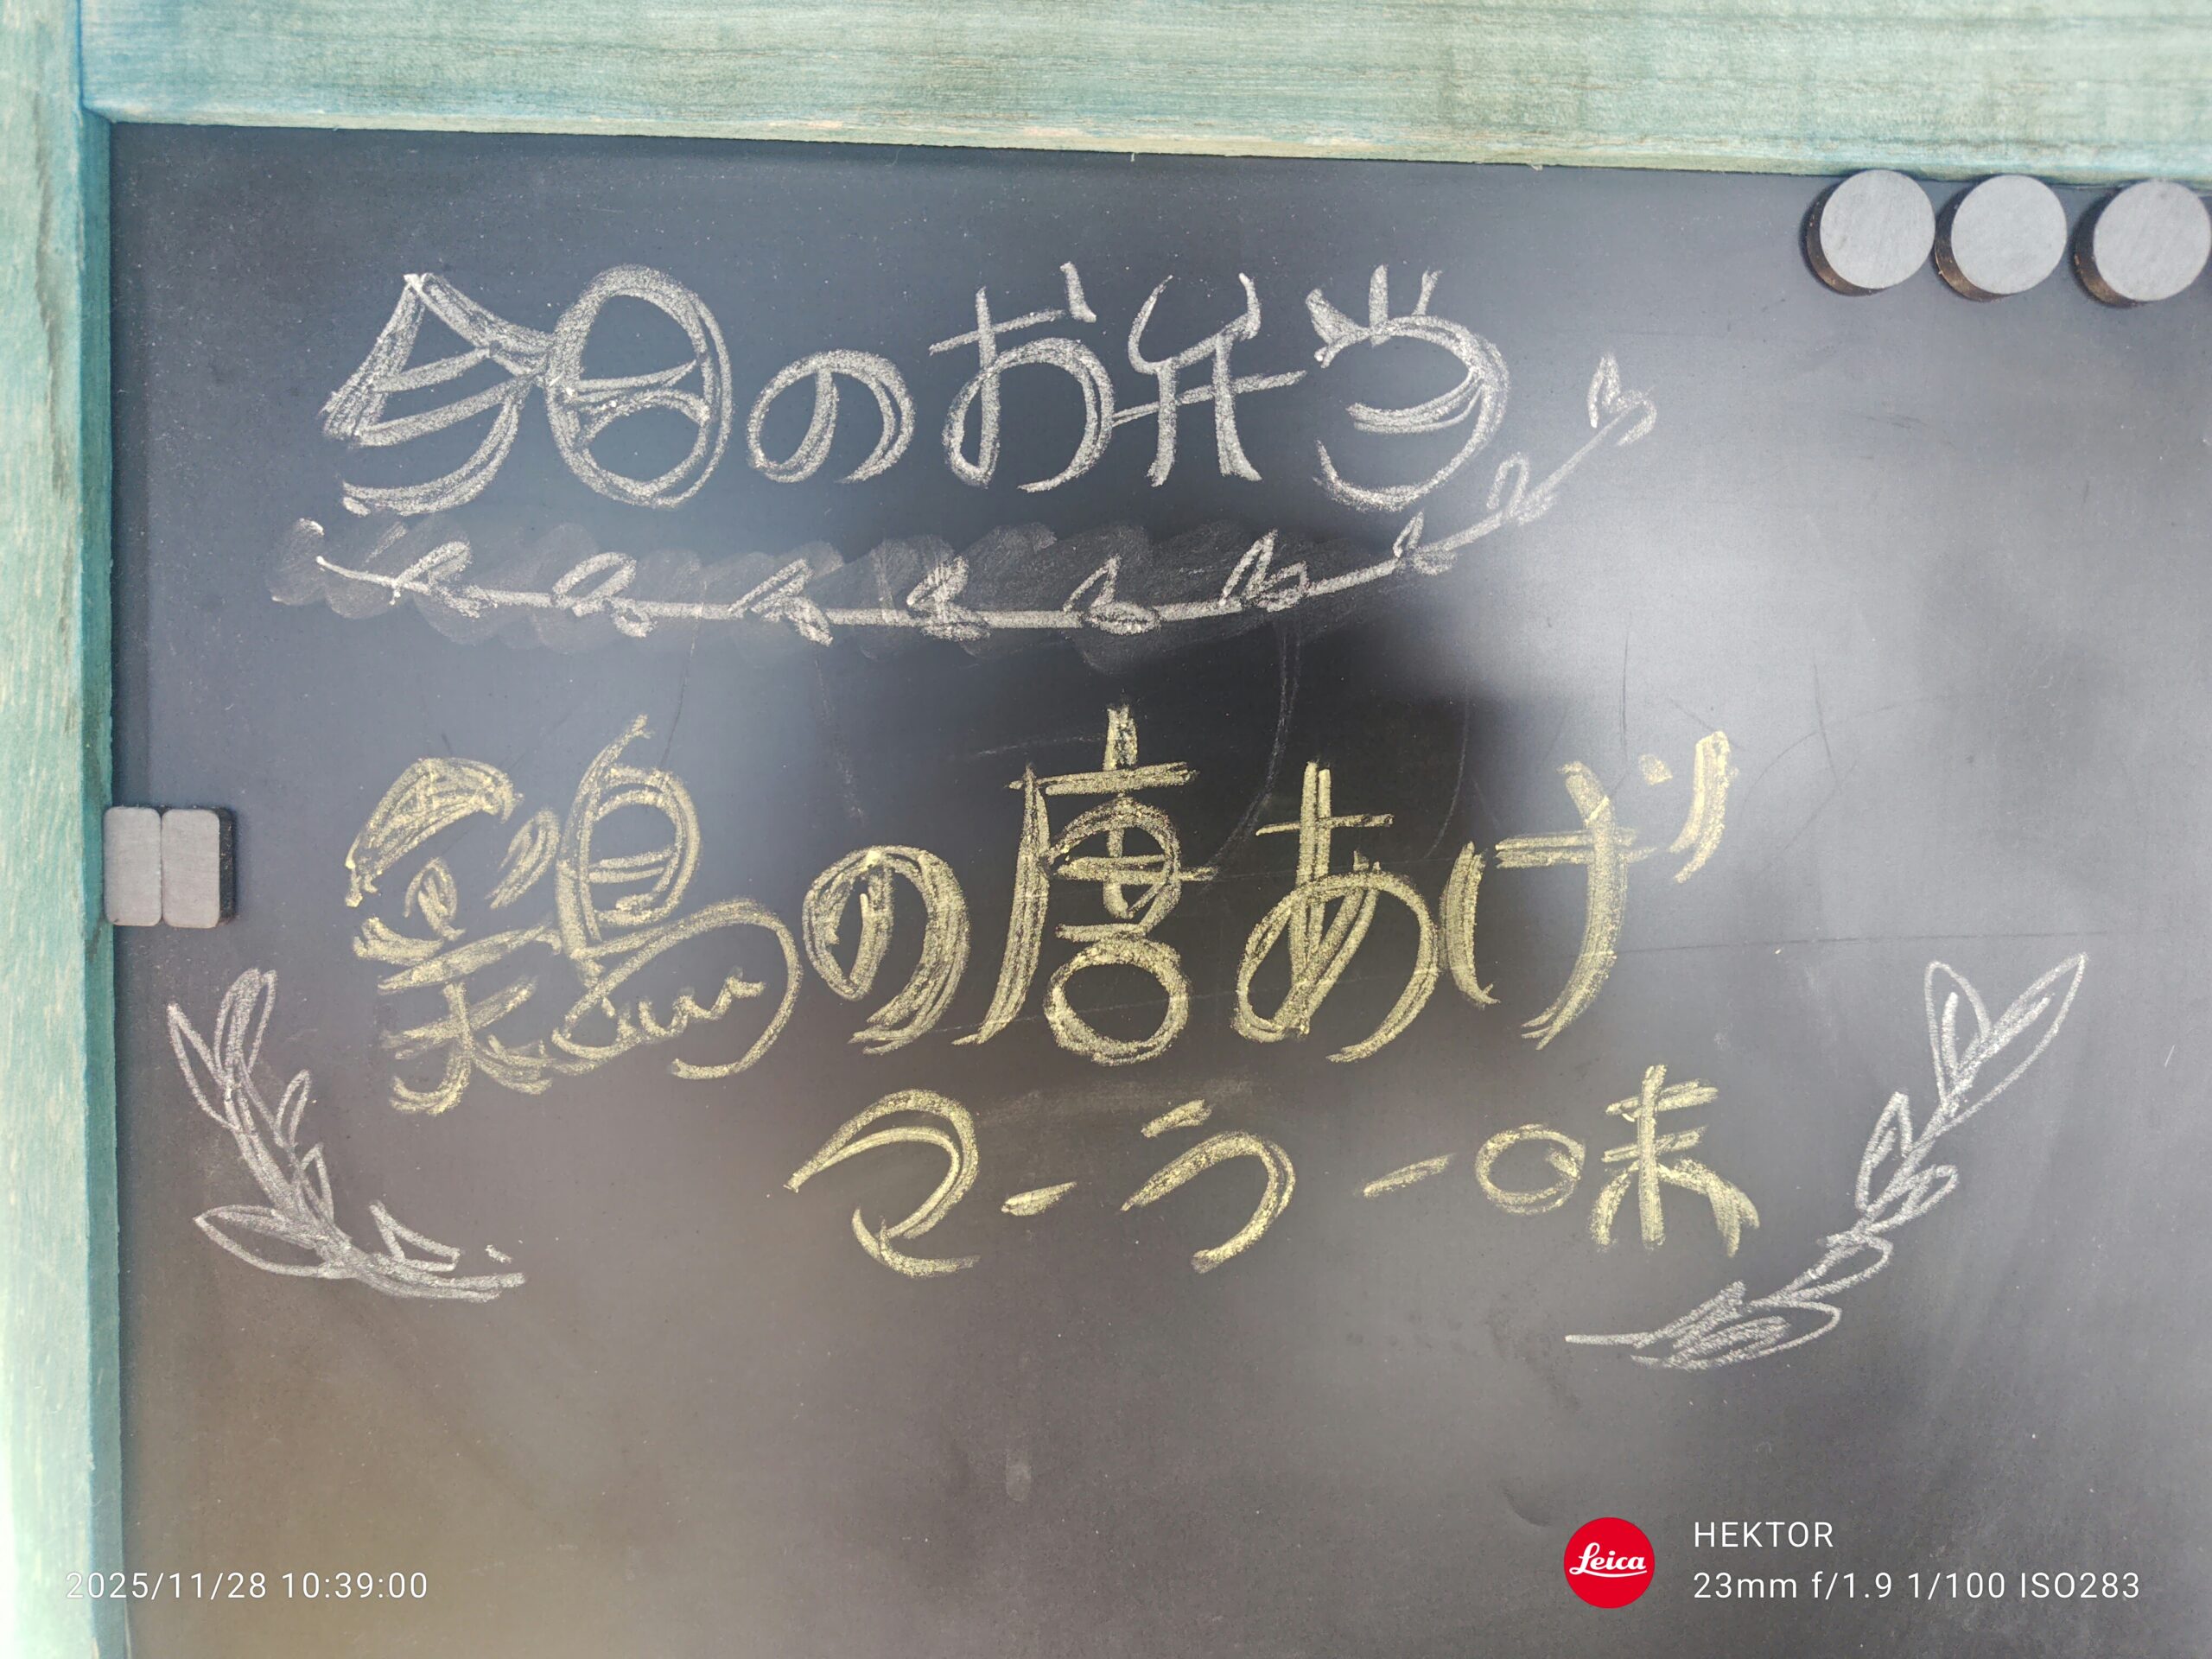 今日のお弁当
鶏の唐あげ
マーラー味
2025/11/28 10:39:00
Leica
HEKTOR
23mm f/1.9 1/100 ISO283